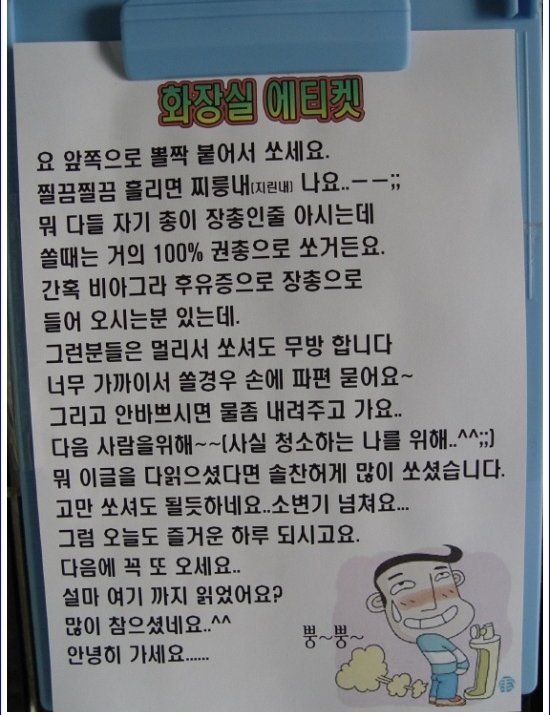 화장실 에티켓
요 앞쪽으로 뽈짝 붙어서 쏘세요.
찔끔찔끔 흘리면 찌릉내(지린내) 나요..ㅡㅡ;;
뭐 다들 자기 총이 장총인줄 아시는데
쏠때는 거의 100% 권총으로 쏘거든요.
간혹 비아그라 후유증으로 장총으로
들어 오시는분 있는데.
그런분들은 멀리서 쏘셔도 무방 합니다
너무 가까이서 쏠경우 손에 파편 묻어요~
그리고 안바쁘시면 물좀 내려주고 가요..
다음 사람을위해~~(사실 청소하는 나를 위해..^^;;)
뭐 이글을 다읽으셨다면 솔찬허게 많이 쏘셨습니다.
고만 쏘셔도 될듯하네요..소변기 넘쳐요...
그럼 오늘도 즐거운 하루 되시고요.
다음에 꼭 또 오세요..
설마 여기 까지 읽었어요?
많이 참으셨네요..^^
안녕히 가세요......
뿡~뿡~